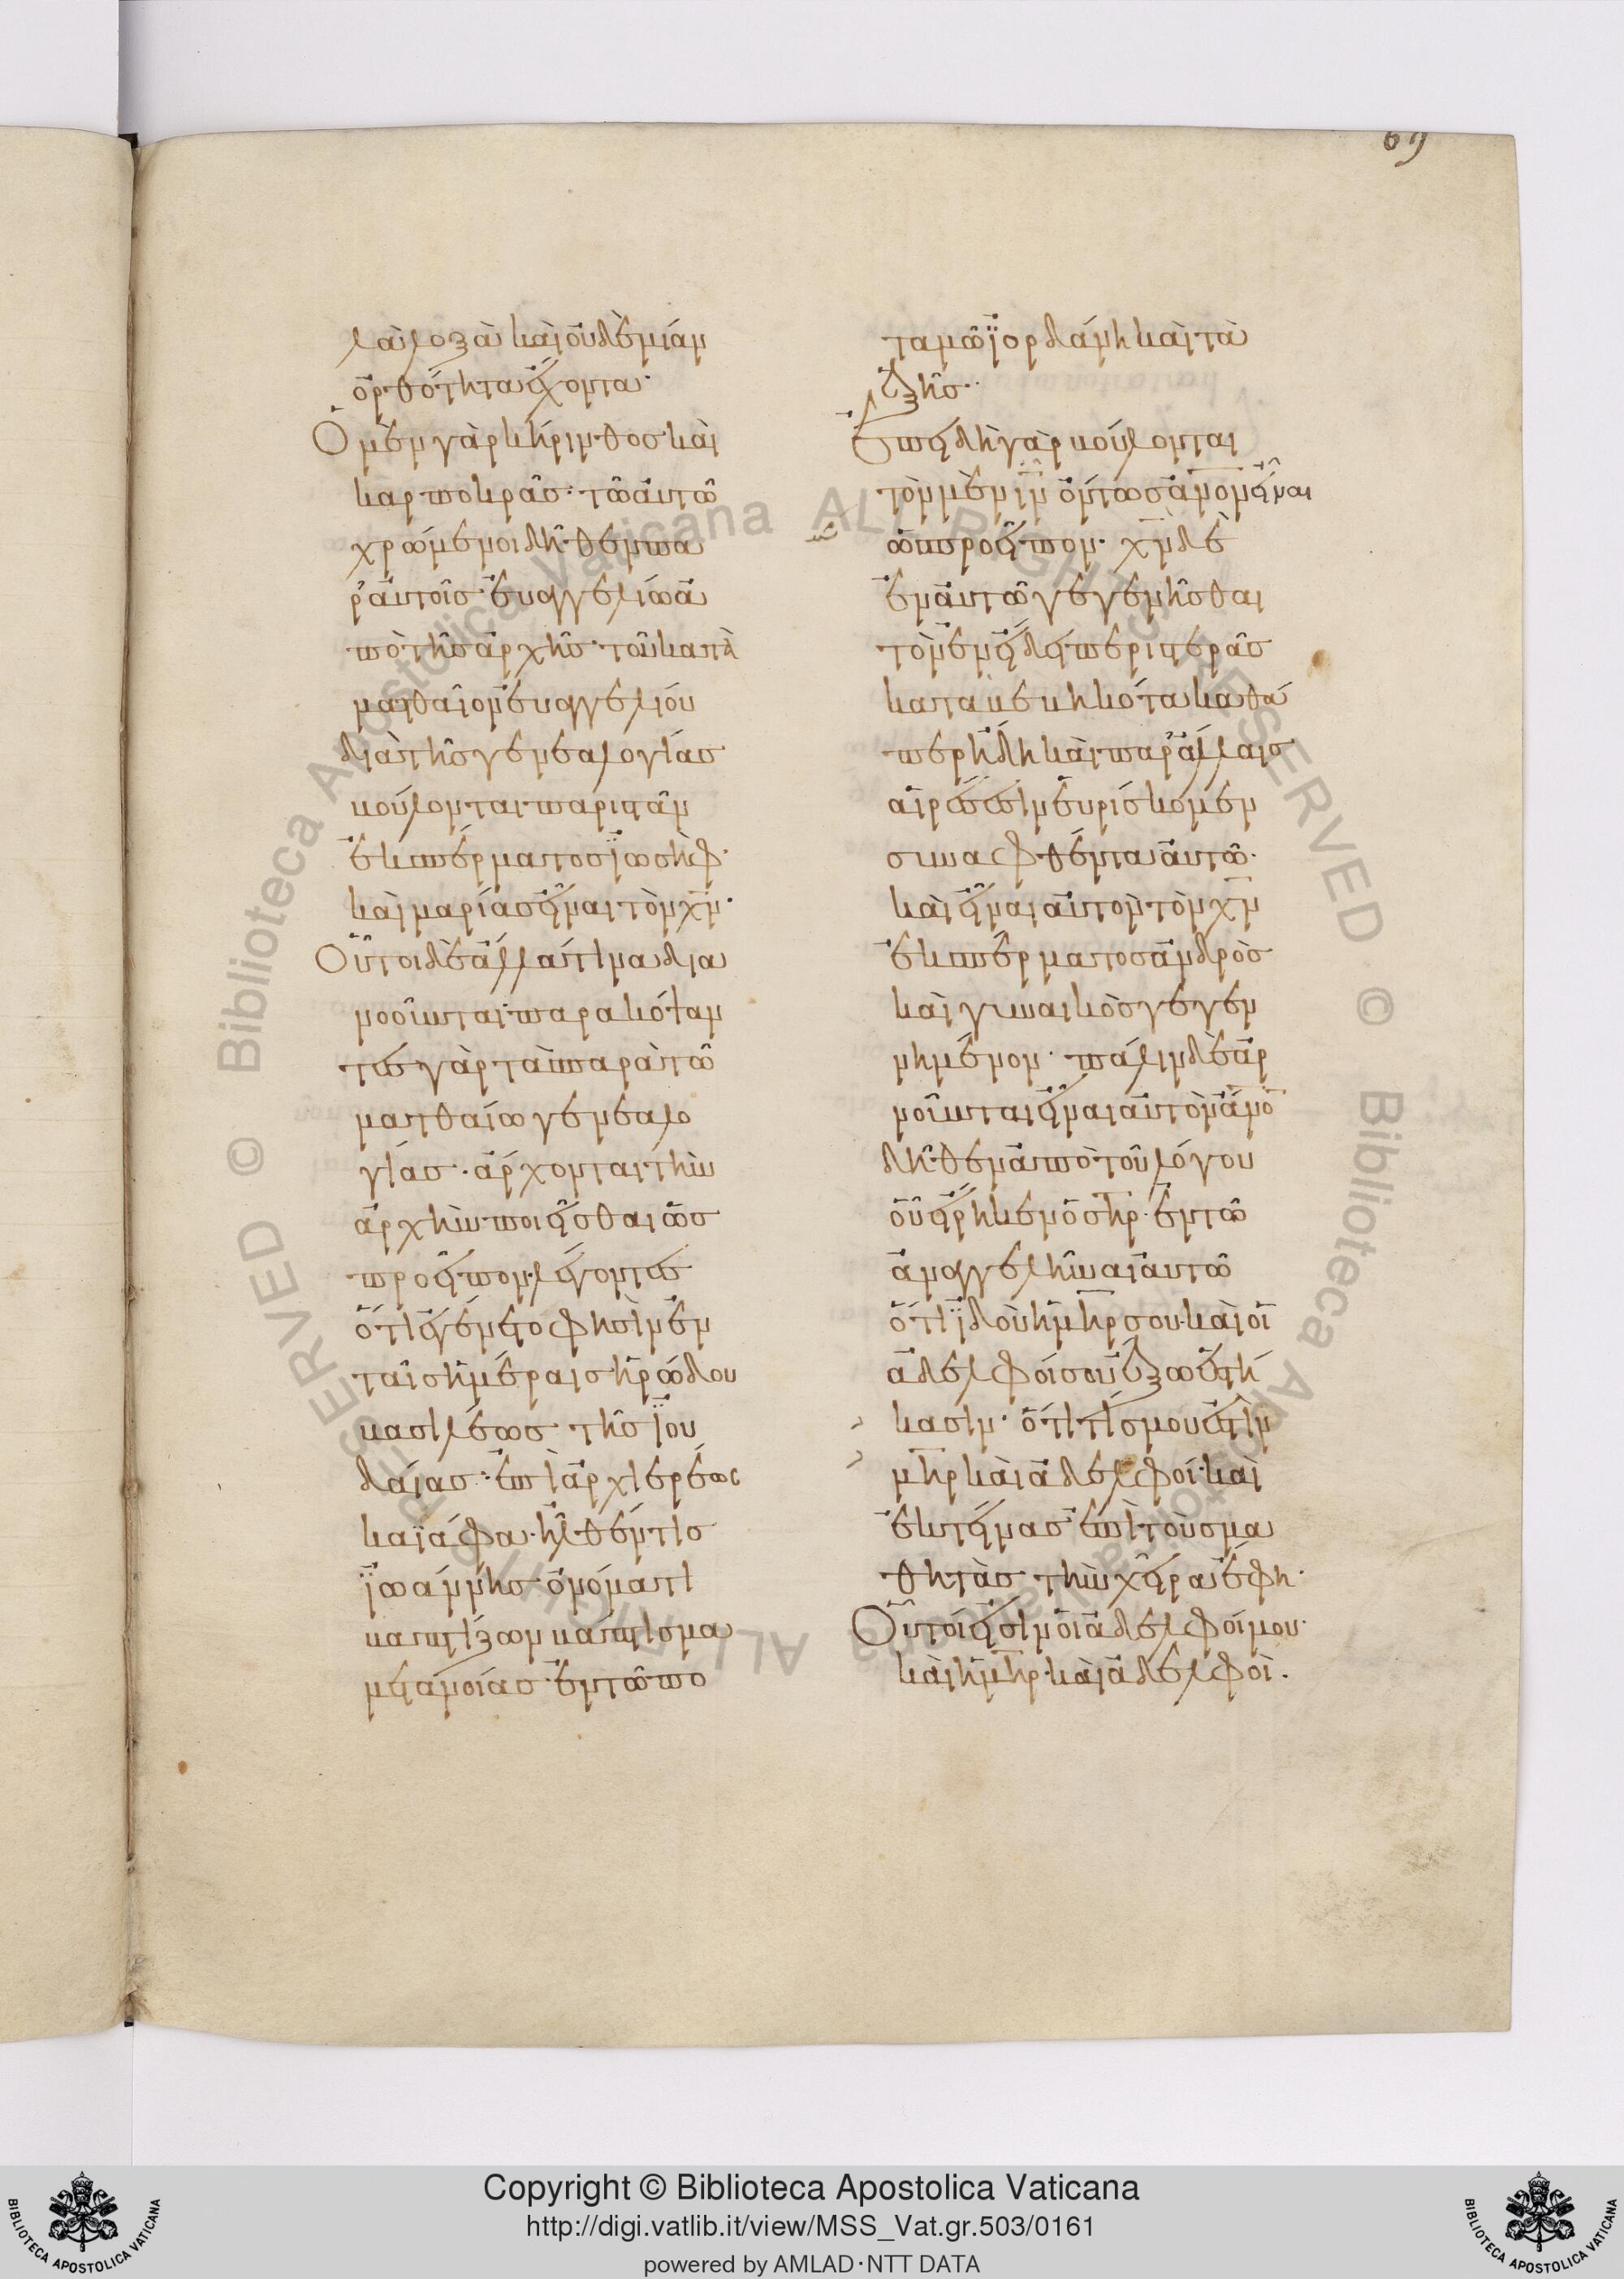 69
λαὶ λοξὰ καὶ οὐδεμίαν
ὀρθότητα ἔχοντα·
Ὁ μὲν γὰρ κήρινθος καὶ
καρποκρᾶς· τῶ αὐτῶ
χρώμενοι δῆθεν πα
ρ' αὐτοῖς εὐαγγελίω ἀ
πὸ τῆς ἀρχῆς τοῦ κατὰ
ματθαῖον εὐαγγελίου
διὰ τῆς γενεαλογίας
βούλονται παριστᾶν
ἐκ σπέρματος ϊωσὴφ·
καὶ μαρίας εἶναι τὸν χν·
Οὗτοι δὲ ἄλλά τινα δια
νοοῦνται· παρακόψαν
τες γὰρ τὰς παρὰ τῶ
ματθαίω γενεαλο
γίας· ἄρχονται τὴν
ἀρχὴν ποιεῖσθαι ὡς
προεῖπον· λέγοντες
ὅτι ἐγένετο φησὶν ἐν
ταῖς ἡμέραις ἡρώδου
βασιλέως τῆς ϊου
δαίας· ἐπὶ ἀρχιερέως
καϊάφα· ἦλθέν τις
ϊωάννης ὀνόματι
βαπτίζων βάπτισμα
μετανοίας ἐν τῶ πο
ταμῶ ϊορδάνη καὶ τὰ
ἑξῆς·
Ἐπειδὴ γὰρ βούλονται
τὸν μὲν ιν ὄντως ἄνον εἶναι
ὡς προεῖπον· χν δὲ
ἐν αὐτῶ γεγενῆσθαι
τὸν ἐν εἴδει περιστερᾶς
καταβεβηκότα καθά
περ ἤδη καὶ παρ' ἄλλαις
αἱρέσεσιν εὑρίσκομεν
συναφθέντα αὐτῶ·
καὶ εἶναι αὐτὸν τὸν χν
ἐκ σπέρματος ἀνδρὸς
καὶ γυναικὸς γεγεν
νημένον· πάλιν δὲ ἀρ
νοῦνται εἶναι αὐτὸν ἄνον
δῆθεν ἀπὸ τοῦ λόγου
οὗ εἴρηκεν ὁ σηρ· ἐν τῶ
ἀναγγελῆναι αὐτῶ
ὅτι ϊδοὺ ἡ μηρ σου καὶ οἱ
ἀδελφοί σου ἔξω ἑστή
κασιν· ὅτι τίς μου ἐστὶν
μηρ καὶ ἀδελφοί· καὶ
ἐκτείνας ἐπὶ τοὺς μα
θητὰς τὴν χεῖρα ἔφη·
Οὗτοί εἰσιν οἱ ἀδελφοί μου·
καὶ ἡ μηρ· καὶ ἀδελφοὶ.
Copyright © Biblioteca Apostolica Vaticana
http://digi.vatlib.it/view/MSS_Vat.gr.503/0161
powered by AMLAD·NTT DATA
BIBLIOTECA APOSTOLICA VATICANA
BIBLIOTECA APOSTOLICA VATICANA
© Biblioteca Apostolica Vaticana ALL RIGHTS RESERVED
© Biblioteca Apostolica Vaticana ALL RIGHTS RESERVED